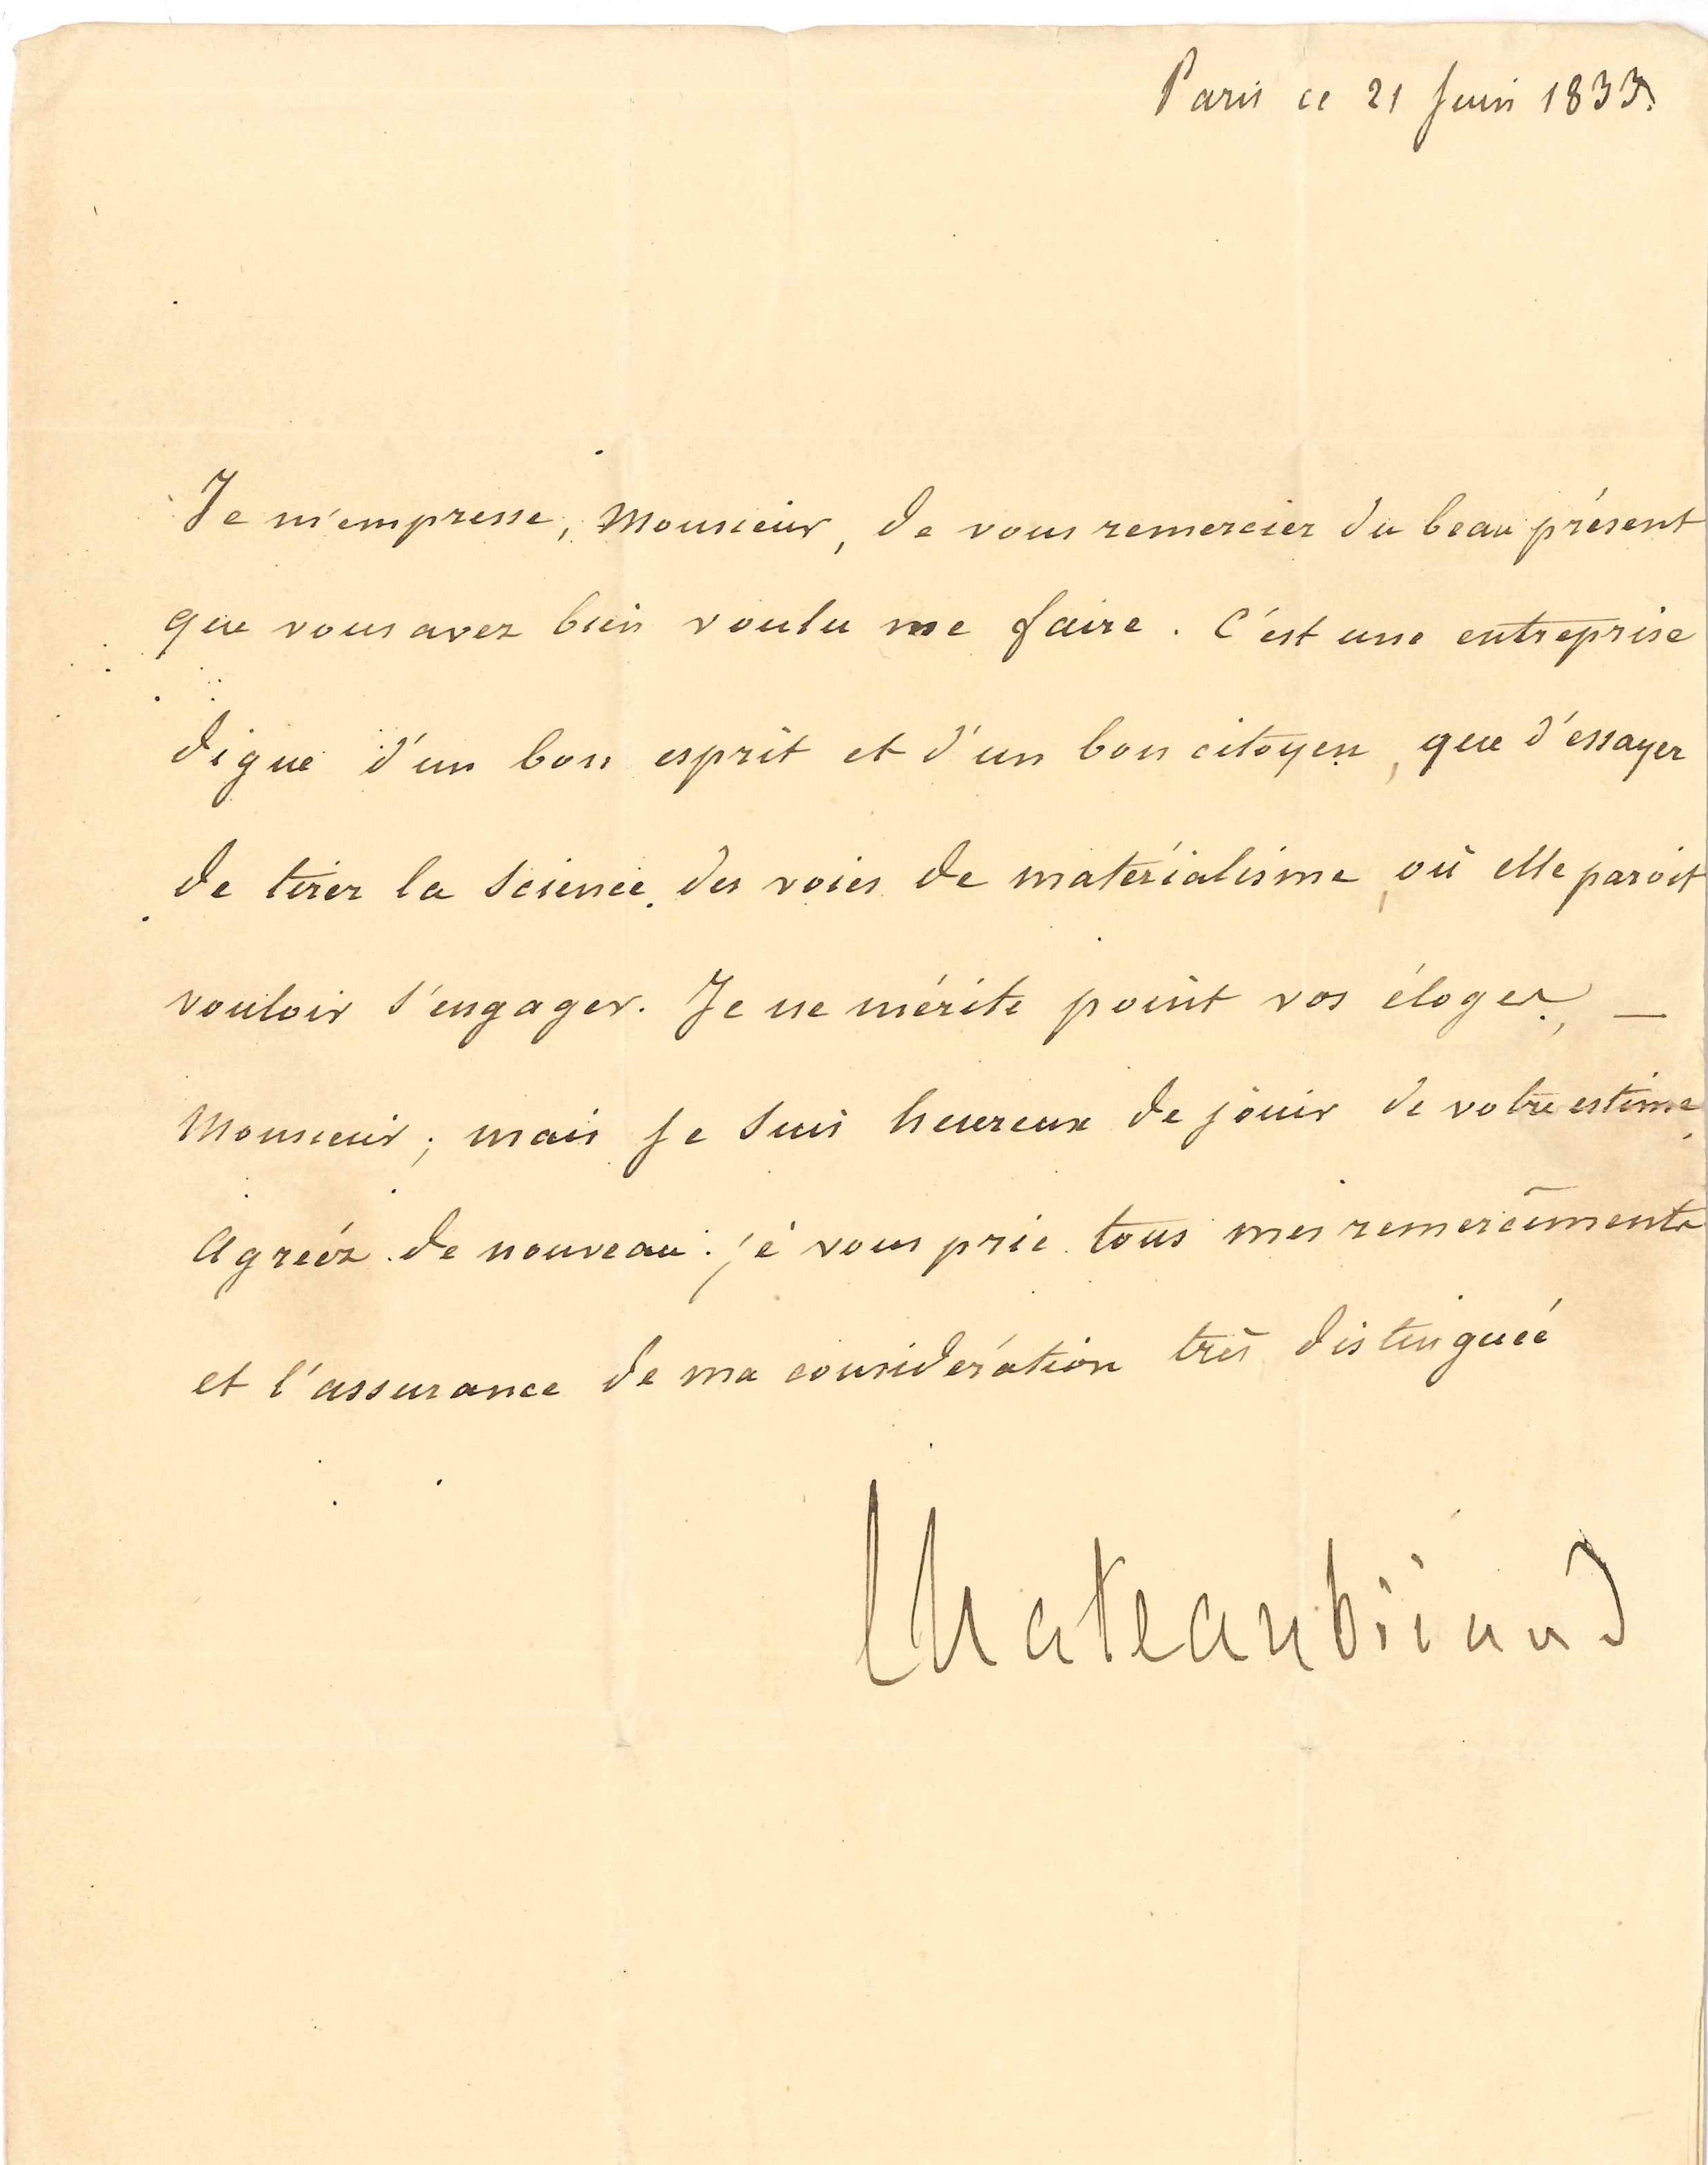 Paris ce 21 Juin 1833.
Je m'empresse, Monsieur, de vous remercier du beau présent
que vous avez bien voulu me faire. C'est une entreprise
digne d'un bon esprit et d'un bon citoyen, que d'essayer
de tirer la Science des voies de matérialisme, où elle paroit
vouloir s'engager. Je ne mérite point vos éloges, —
Monsieur; mais je suis heureux de jouir de votre estime.
Agréez de nouveau je vous prie tous mes remercîments
et l'assurance de ma considération très distinguée
Chateaubriand